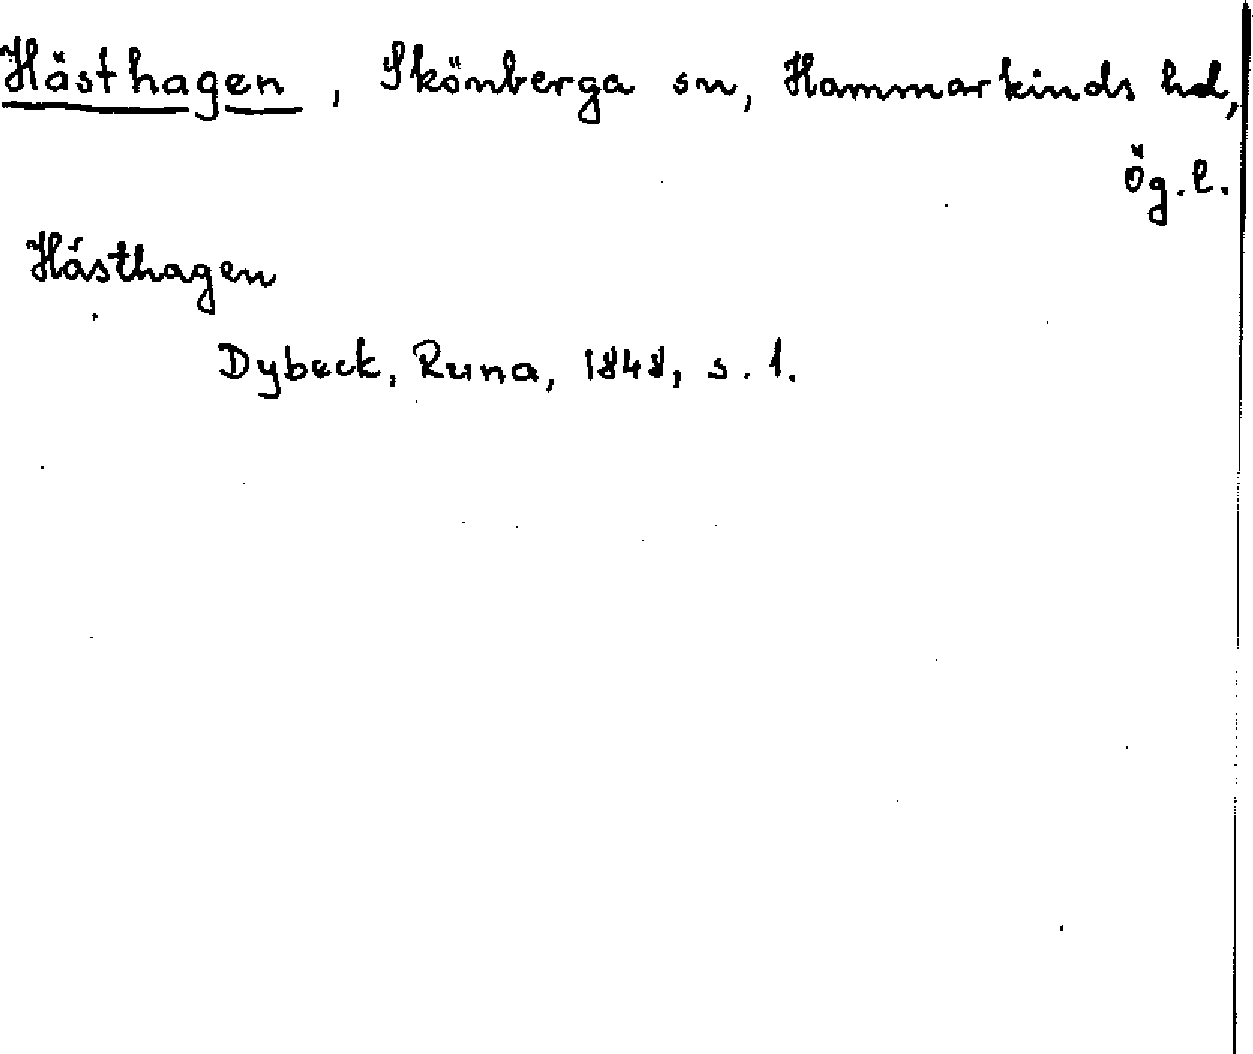 Hästhagen, Skönberga sn, Hammarkinds hd,
Ög.l.
Hästhagen
Dybeck, Runa, 1848, s. 1.